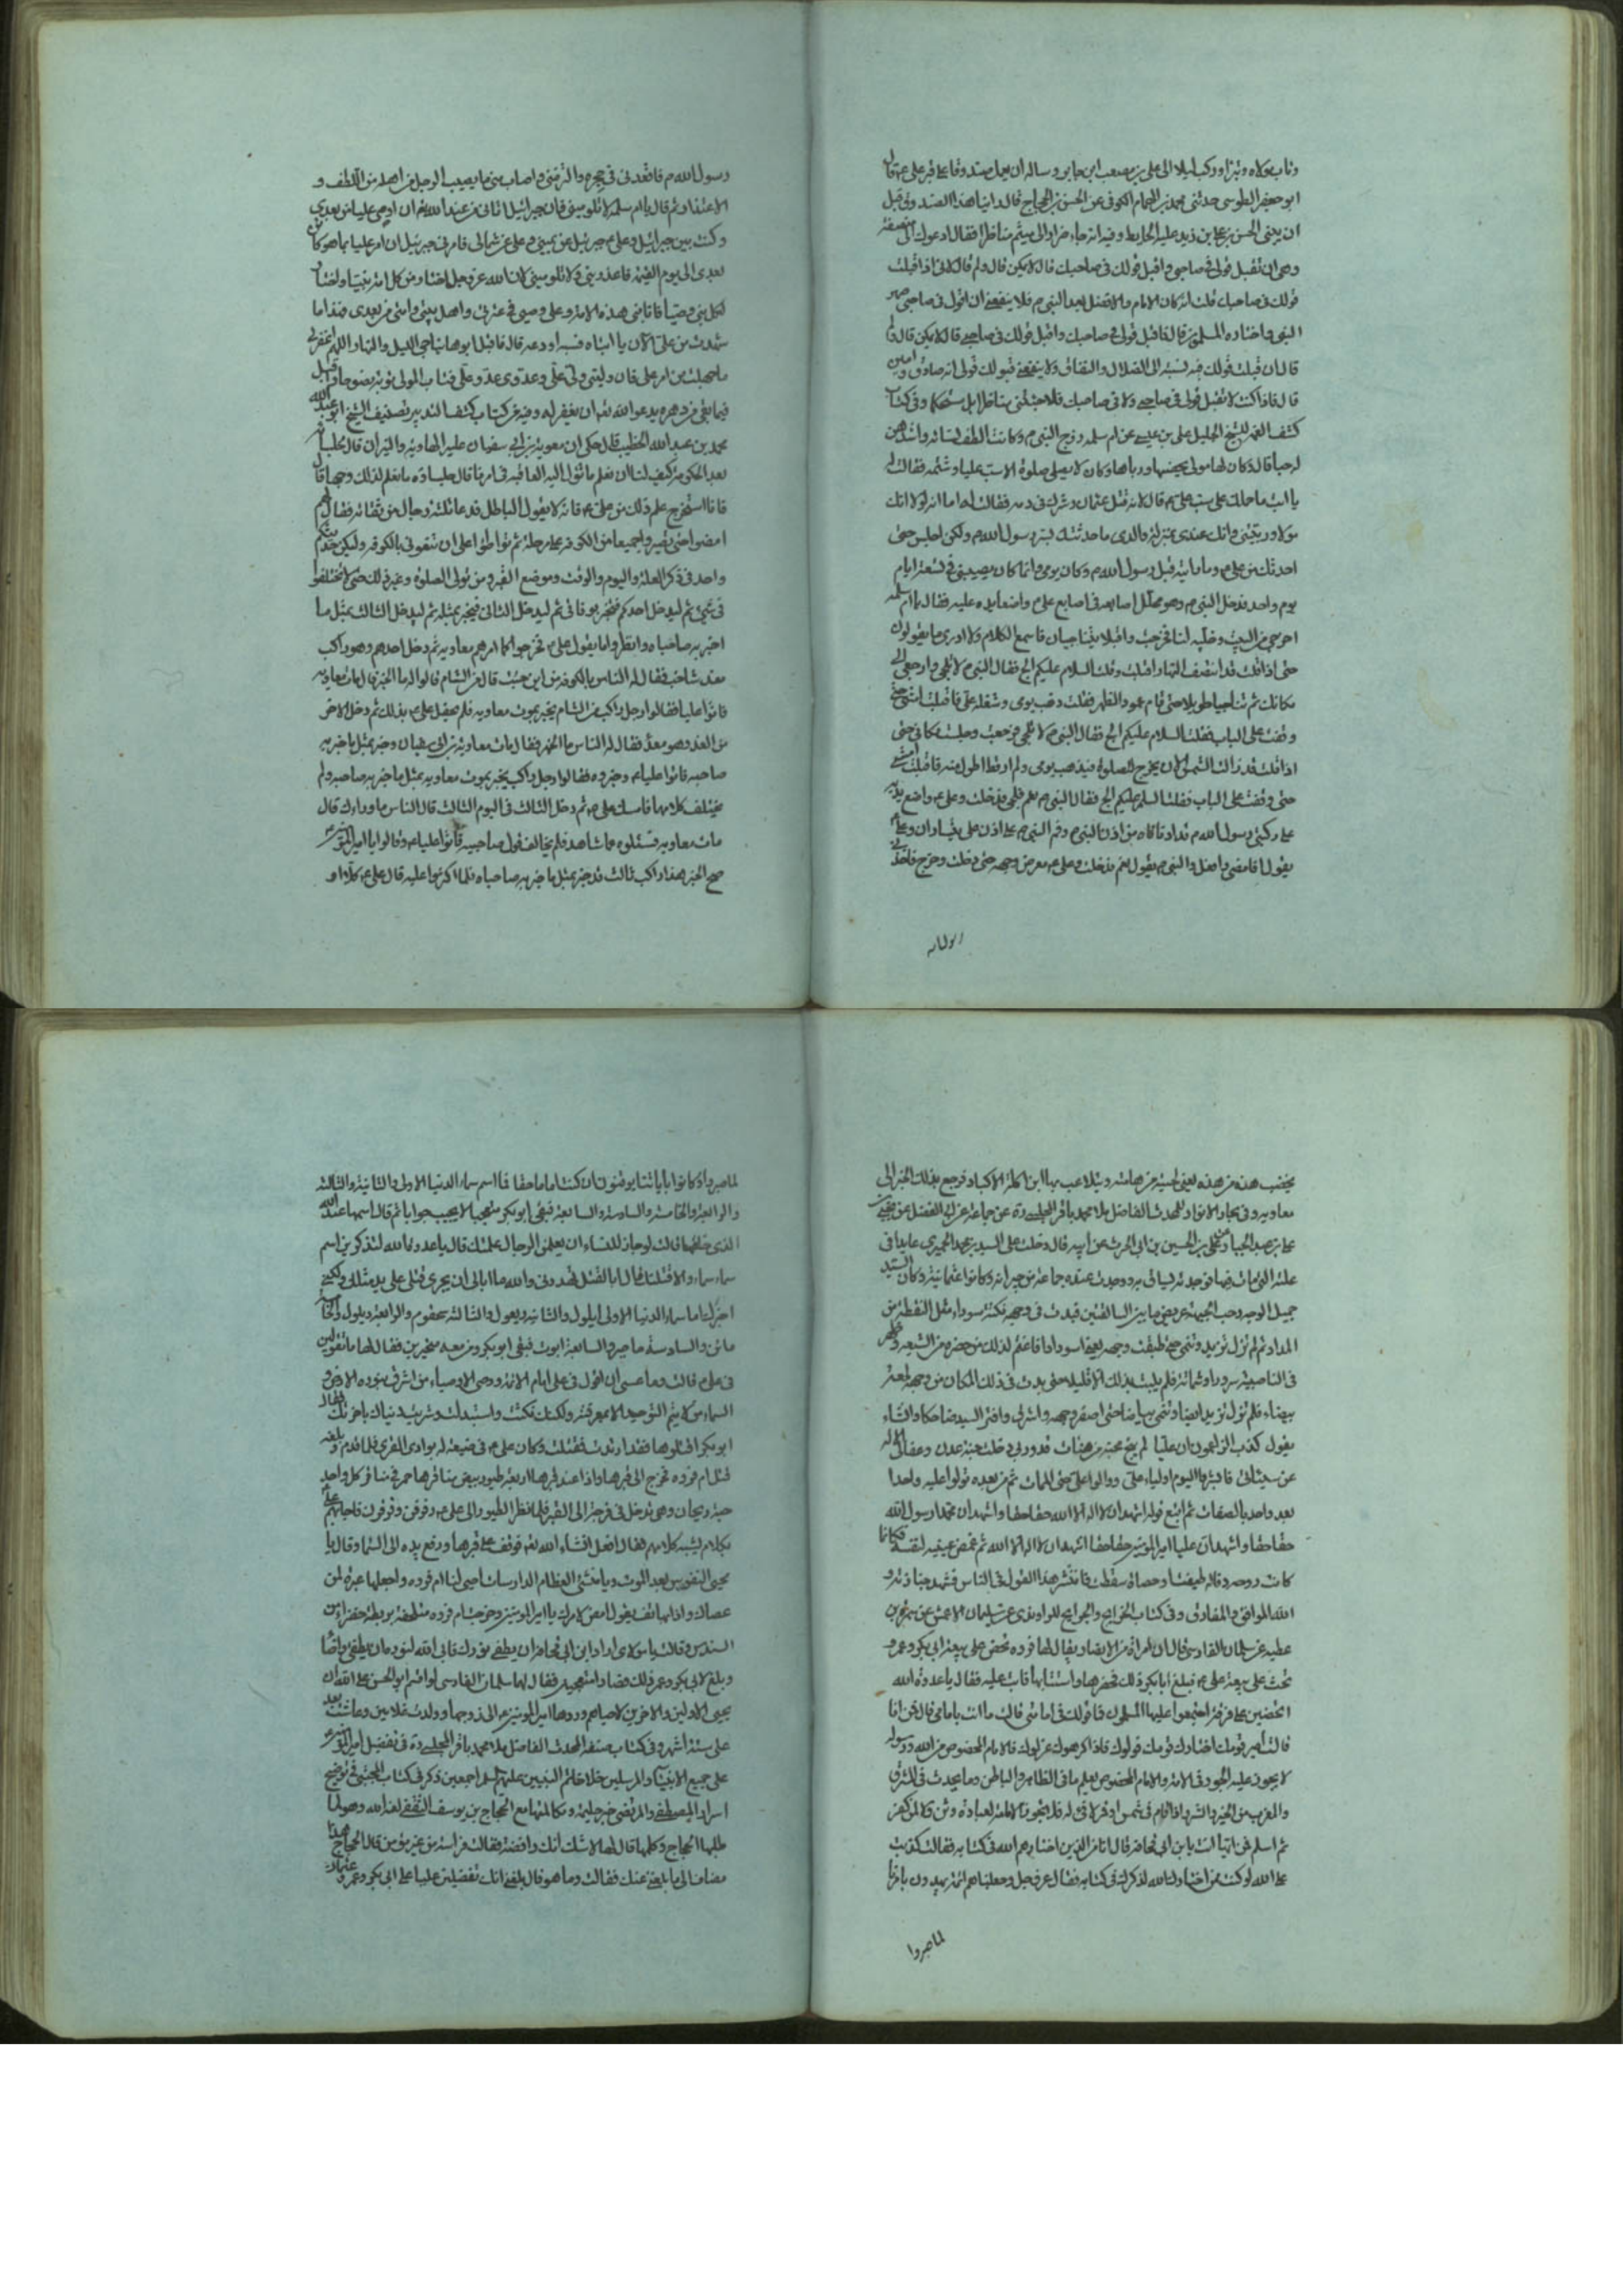 وتاب مولاه وتبرا وركب ليلا الى على بن مصعب ابن جابر وساله ان يعمل صندوقا على قبر على ع قال
ابو جعفر الطوسى حدثنى محمد بن الهمام الكوفى عن الحسن بن الحجاج قال راينا هذا الصندوق قبل
ان يبنى الحسن بن زيد عليه الحايط وفيه انه جاء ضرار الى ميثم مناظرا فقال ادعوك الى نصفة
وهى ان تقبل قولى فى صاحبى واقبل قولك فى صاحبك قال لا يكن قال ولم قال لانى اذا قبلت
قولك فى صاحبك قلت انه كان الامام والافضل بعد النبى ص فلا ينفعنى ان اقول فى صاحبى صهر
النبى واختاره المسلمون قال فاقبل قولى فى صاحبك واقبل قولك فى صاحبى قال لا يكن قال ولم
قال ان قبلت قولك فيه نسبته الى الضلال والنفاق ولا ينفعنى قبولك قولى انه صادق وامين
قال فاذا كنت لا تقبل قولى فى صاحبى ولا فى صاحبك فلا جئتنى مناظرا بل متحكما وفى كتاب
كشف الغمه للشيخ الجليل على بن عيسى عن ام سلمه زوج النبى ص وكانت الطف نسائه واشدهن
له حبا قال وكان لها مولى يحضنها ورباها وكان لا يصلى صلوة الا سب عليا وشتمه فقالت له
يا ابت ما حملك على سب على ع قال لانه قتل عثمان وشرك فى دمه فقالت له اما انه لولا انك
مولاى وربيتنى وانك عندى بمنزلة والدى ما حدثتك بسر رسول الله ص ولكن اجلس حتى
احدثك عن على ع وما رايته قبل رسول الله ص وكان يومى وانما كان يصيبنى فى تسعة ايام
يوم واحد فدخل النبى ص وهو مخلل اصابعه فى اصابع على ع واضعا يده عليه فقال يا ام سلمه
اخرجى من البيت وخليه لنا فخرجت واقبلا يتناجيان فاسمع الكلام ولا ادرى ما يقولون
حتى اذا قلت قد انتصف النهار اقبلت وقلت السلام عليكم الج فقال النبى ص لا تلجى وارجعى الى
مكانك ثم تناجيا طويلا حتى قام عمود الظهر فقلت ذهب يومى وشغله على فاقبلت امشى حتى
وقفت على الباب فقلت السلام عليكم الج فقال النبى ص لا تلجى فرجعت وجلست مكانى حتى
اذا قلت قد زالت الشمس الان يخرج للصلوة فيذهب يومى ولم ار قط اطول منه فاقبلت امشى
حتى وقفت على الباب فقلت السلم عليكم الج فقال النبى ص نعم فلجى فدخلت وعلى ع واضع يديه
على ركبتى رسول الله ص قد ادنى فاه من اذن النبى ص وفم النبى ص على اذن على يتساران وعلى
يقول افامضى وافعل والنبى ص يقول نعم فدخلت وعلى ع معرض وجهه حتى دخلت وخرج فاخذنى
رسول الله
رسول الله ص فاقعدنى فى حجره والزمنى واصاب منى ما يصيب الرجل من اهله من اللطف و
الاعتذار ثم قال يا ام سلمه لا تلومينى فان جبرائيل اتانى من عند الله يامر ان اوصى عليا من بعدى
وكنت بين جبرائيل وعلى ع جبرئيل عن يمينى وعلى عن شمالى فامرنى جبرئيل ان امر عليا بما هو كائن
بعدى الى يوم القيمه فاعذرينى ولا تلومينى لان الله عز وجل اختار من كل امة نبيا واختار
لكل نبى وصيا فانا نبى هذه الامة وعلى وصيى فى عترتى واهل بيتى وامتى من بعدى فهذا ما
شهدت من على الان يا ابتاه فسبه او دعه قال فاقبل ابوها يناجى الليل والنهار اللهم اغفر لى
ما جهلت من امر على فان وليى ولى على وعدوى عدو على فتاب المولى توبة نصوحا واقبل
فيما بقى من دهره يدعو الله تعالى ان يغفر له وفيه عن كتاب كشف التدبير تصنيف الشيخ ابو عبد الله
محمد بن عبد الله الخطيب قال حكى ان معويه بن ابى سفيان عليه الهاويه والنيران قال لجلسائه
بعد الحكومة كيف لنا ان نعلم ما تؤل اليه العاقبه فى امرنا قال جلساؤه ما نعلم لذلك وجها قال
فانا استخرج علم ذلك من على ع فانه لا يقول الباطل فدعا ثلثة رجال من ثقاته فقال لهم
امضوا حتى تصيروا جميعا من الكوفه على مرحلة ثم تواطؤا على ان تنعونى بالكوفه وليكن حديثكم
واحد فى ذكر العله واليوم والوقت وموضع القبر ومن تولى الصلوة وغير ذلك حتى لا تختلفوا
فى شئ ثم ليدخل احدكم فيخبر بوفاتى ثم ليدخل الثانى فيخبر بمثله ثم ليدخل الثالث بمثل ما
اخبر به صاحباه وانظروا ما يقول على ع فخرجوا كما امرهم معاويه ثم دخل احدهم وهو راكب
مغذ شاحب فقال له الناس بالكوفه من اين جئت قال من الشام قالوا له ما الخبر قال مات معاويه
فاتوا عليا فقالوا رجل راكب من الشام يخبر بموت معاويه فلم يحفل على ع بذلك ثم دخل الاخر
من الغد وهو مغذ فقال له الناس ما الخبر فقال مات معاوية بن ابى سفيان وخبر بمثل ما خبر به
صاحبه فاتوا عليا ع وخبروه فقالوا رجل راكب يخبر بموت معاويه بمثل ما خبر به صاحبه ولم
يختلف كلامهما فامسك على ع ثم دخل الثالث فى اليوم الثالث قال الناس ما وراءك قال
مات معاويه فسئلوه عما شاهد فلم يخالف قول صاحبيه فاتوا عليا ع وقالوا يا امير المؤمنين
صح الخبر هذا راكب ثالث قد خبر بمثل ما خبر به صاحباه فلما اكثروا عليه قال على ع كلا او
يخضب هذه من هذه يعنى لحيته من هامته ويتلاعب بها ابن اكلة الاكباد فرجع بذلك الخبر الى
معاويه وفى بحار الانوار للمحدث الفاضل ملا محمد باقر المجلسى ره عن جماعة عن ابى الفضل عن يحيى بن
على بن عبد الجبار عن على بن الحسين بن ابى الحرث عن ابيه قال دخلت على السيد بن محمد الحميرى عايدا فى
علته التى مات فيها فوجدته يساق به ووجدت عنده جماعة من جيرانه وكانوا عثمانية وكان السيد
جميل الوجه رحب الجبهه عريض ما بين السالفتين فبدت فى وجهه نكتة سوداء مثل النقطة من
المداد ثم لم تزل تزيد وتنمى حتى طبقت وجهه يعنى اسودادا فاغتم لذلك من حضره من الشيعه وظهر
فى الناصبية سرورا وشماتة فلم يلبث بذلك الا قليلا حتى بدت فى ذلك المكان من وجهه لمعة
بيضاء فلم تزل تزيد ايضا وتنمى بياضا حتى اصفر وجهه واشرق وافتر السيد ضاحكا وانشاء
يقول كذب الزاعمون ان عليا لم ينج محبه من هنات قد وربى دخلت جنة عدن وعفا لى الاله
عن سيئاتى فابشروا اليوم اولياء على ووالوا على حتى الممات ثم من بعده تولوا عليه واحدا
بعد واحد بالصفات ثم اتبع قوله اشهد ان لا اله الا الله حقا حقا واشهد ان محمدا رسول الله
حقا حقا واشهد ان عليا امير المؤمنين حقا حقا اشهد ان لا اله الا الله ثم غمض عينيه لنفسه فكانما
كانت روحه ذبالة طفئت او حصاة سقطت فانتشر هذا القول فى الناس فشهد جنازته و
الله الموافق والمفارق وفى كتاب الخرايج والجرايح للراوندى عن سليمان الاعمش عن سمرة بن
عطيه عن سلمان الفارسى قال ان امراة من الانصار يقال لها ام فروه تحض على بيعة ابى بكر وعمر و
تحث على بيعة على ع فبلغ ابا بكر ذلك فحضرها واستتابها فابت عليه فقال يا عدوة الله
اتحضين على فرقة اجتمعوا عليها المسلمون فما قولك فى امامتى قالت ما انت بامامى قال فمن انا
قالت امير قومك اختارك قومك فولوك فاذا كرهوك عزلوك فالامام المخصوص من الله ورسوله
لا يجوز عليه الجور فى الامة والامام المخصوص يعلم ما فى الظاهر والباطن وما يحدث فى المشرق
والمغرب من الخير والشر واذا قام فى شمس او قمر لا فئ له فلا تجوز الامامة لعبادة وثن ولا لمن كفر
ثم اسلم فمن ايهما انت يا بن ابى قحافه قال انا من الذين اختارهم الله فى كتابه فقالت كذبت
على الله لو كنت ممن اختارك الله لذكرك فى كتابه فقال عز وجل وجعلناهم ائمة يهدون بامرنا
لما صبروا
لما صبروا وكانوا باياتنا يوقنون ان كنت اماما حقا فما اسم سماء الدنيا الاولى والثانية والثالثه
والرابعة والخامسة والسادسة والسابعة فبقى ابو بكر متحيرا لا يجيب جوابا ثم قال اسمها عند الله
الذى خلقها قالت لو جاز للنساء ان يعلمن الرجال علمتك قال يا عدوة الله لتذكرين اسم
سماء سماء والا قتلتك قالت ابالقتل تهددنى والله ما ابالى ان يجرى قتلى على يد مثلك ولكنى
اخبرك اما سماء الدنيا الاولى ايلول والثانية ربعول والثالثة سحقوم والرابعة ديلول والخامسة
ماين والسادسة ماحير والسابعة ايوث فبقى ابو بكر ومن معه متحيرين فقال لها ما تقولين
فى على ع قالت وما عسى ان اقول فى على امام الائمة ووصى الاوصياء من اشرق بنوره الارض و
السماء من لا يتم التوحيد الا بمعرفته ولكنك نكثت واستبدلت وشريت دنياك باخرتك فقال
ابو بكر اقتلوها فقد ارتدت فقتلت وكان على ع فى ضيعة له بوادى القرى فلما قدم وبلغه
قتل ام فروه فخرج الى قبرها واذا عند قبرها اربعة طيور بيض مناقرها حمر فى منقار كل واحد
حبة ريحان وهى تدخل فى فرجة الى القبر فلما نظر الطيور الى على ع رفرفن وقرقرن فاجابهم على
بكلام يشبه كلامهم فقال افعل انشاء الله تعالى فوقف على قبرها ورفع يده الى السماء وقال يا
محيى النفوس بعد الموت ويا منشئ العظام الدارسات احيى لنا ام فروه واجعلها عبرة لمن
عصاك واذا بهاتف يقول امض لامرك يا امير المؤمنين وخرجت ام فروه متلحفة بريطة خضراء من
السندس وقالت يا مولاى اراد ابن ابى قحافه ان يطفئ نورك فابى الله لنورك ان يطفئ وانا
وبلغ لابى بكر وعمر ذلك فصارا متعجبين فقال لهما سلمان الفارسى لو اقسم ابو الحسن على الله ان
يحيى الاولين والاخرين لاحياهم وردها امير المؤمنين ع الى زوجها وولدت غلامين وعاشت بعد
على ستة اشهر وفى كتاب صنفه المحدث الفاضل ملا محمد باقر المجلسى ره فى تفضيل امير المؤمنين
على جميع الانبياء والمرسلين خلا خاتم النبيين عليهم السلم اجمعين ذكر فى كتاب المجتبى فى توضيح
اسرار المصطفى والمرتضى خبر حليمة ومكالمتها مع الحجاج بن يوسف الثقفى لعنه الله وهو لما
طلبها الحجاج وكلمها قال لها لا شك انك رافضة فقالت فراسة من غير مؤمن قال الحجاج هذا
مضاف الى ما بلغنى عنك فقالت وما هو قال بلغنى انك تفضلين عليا على ابى بكر وعمر وعثمان